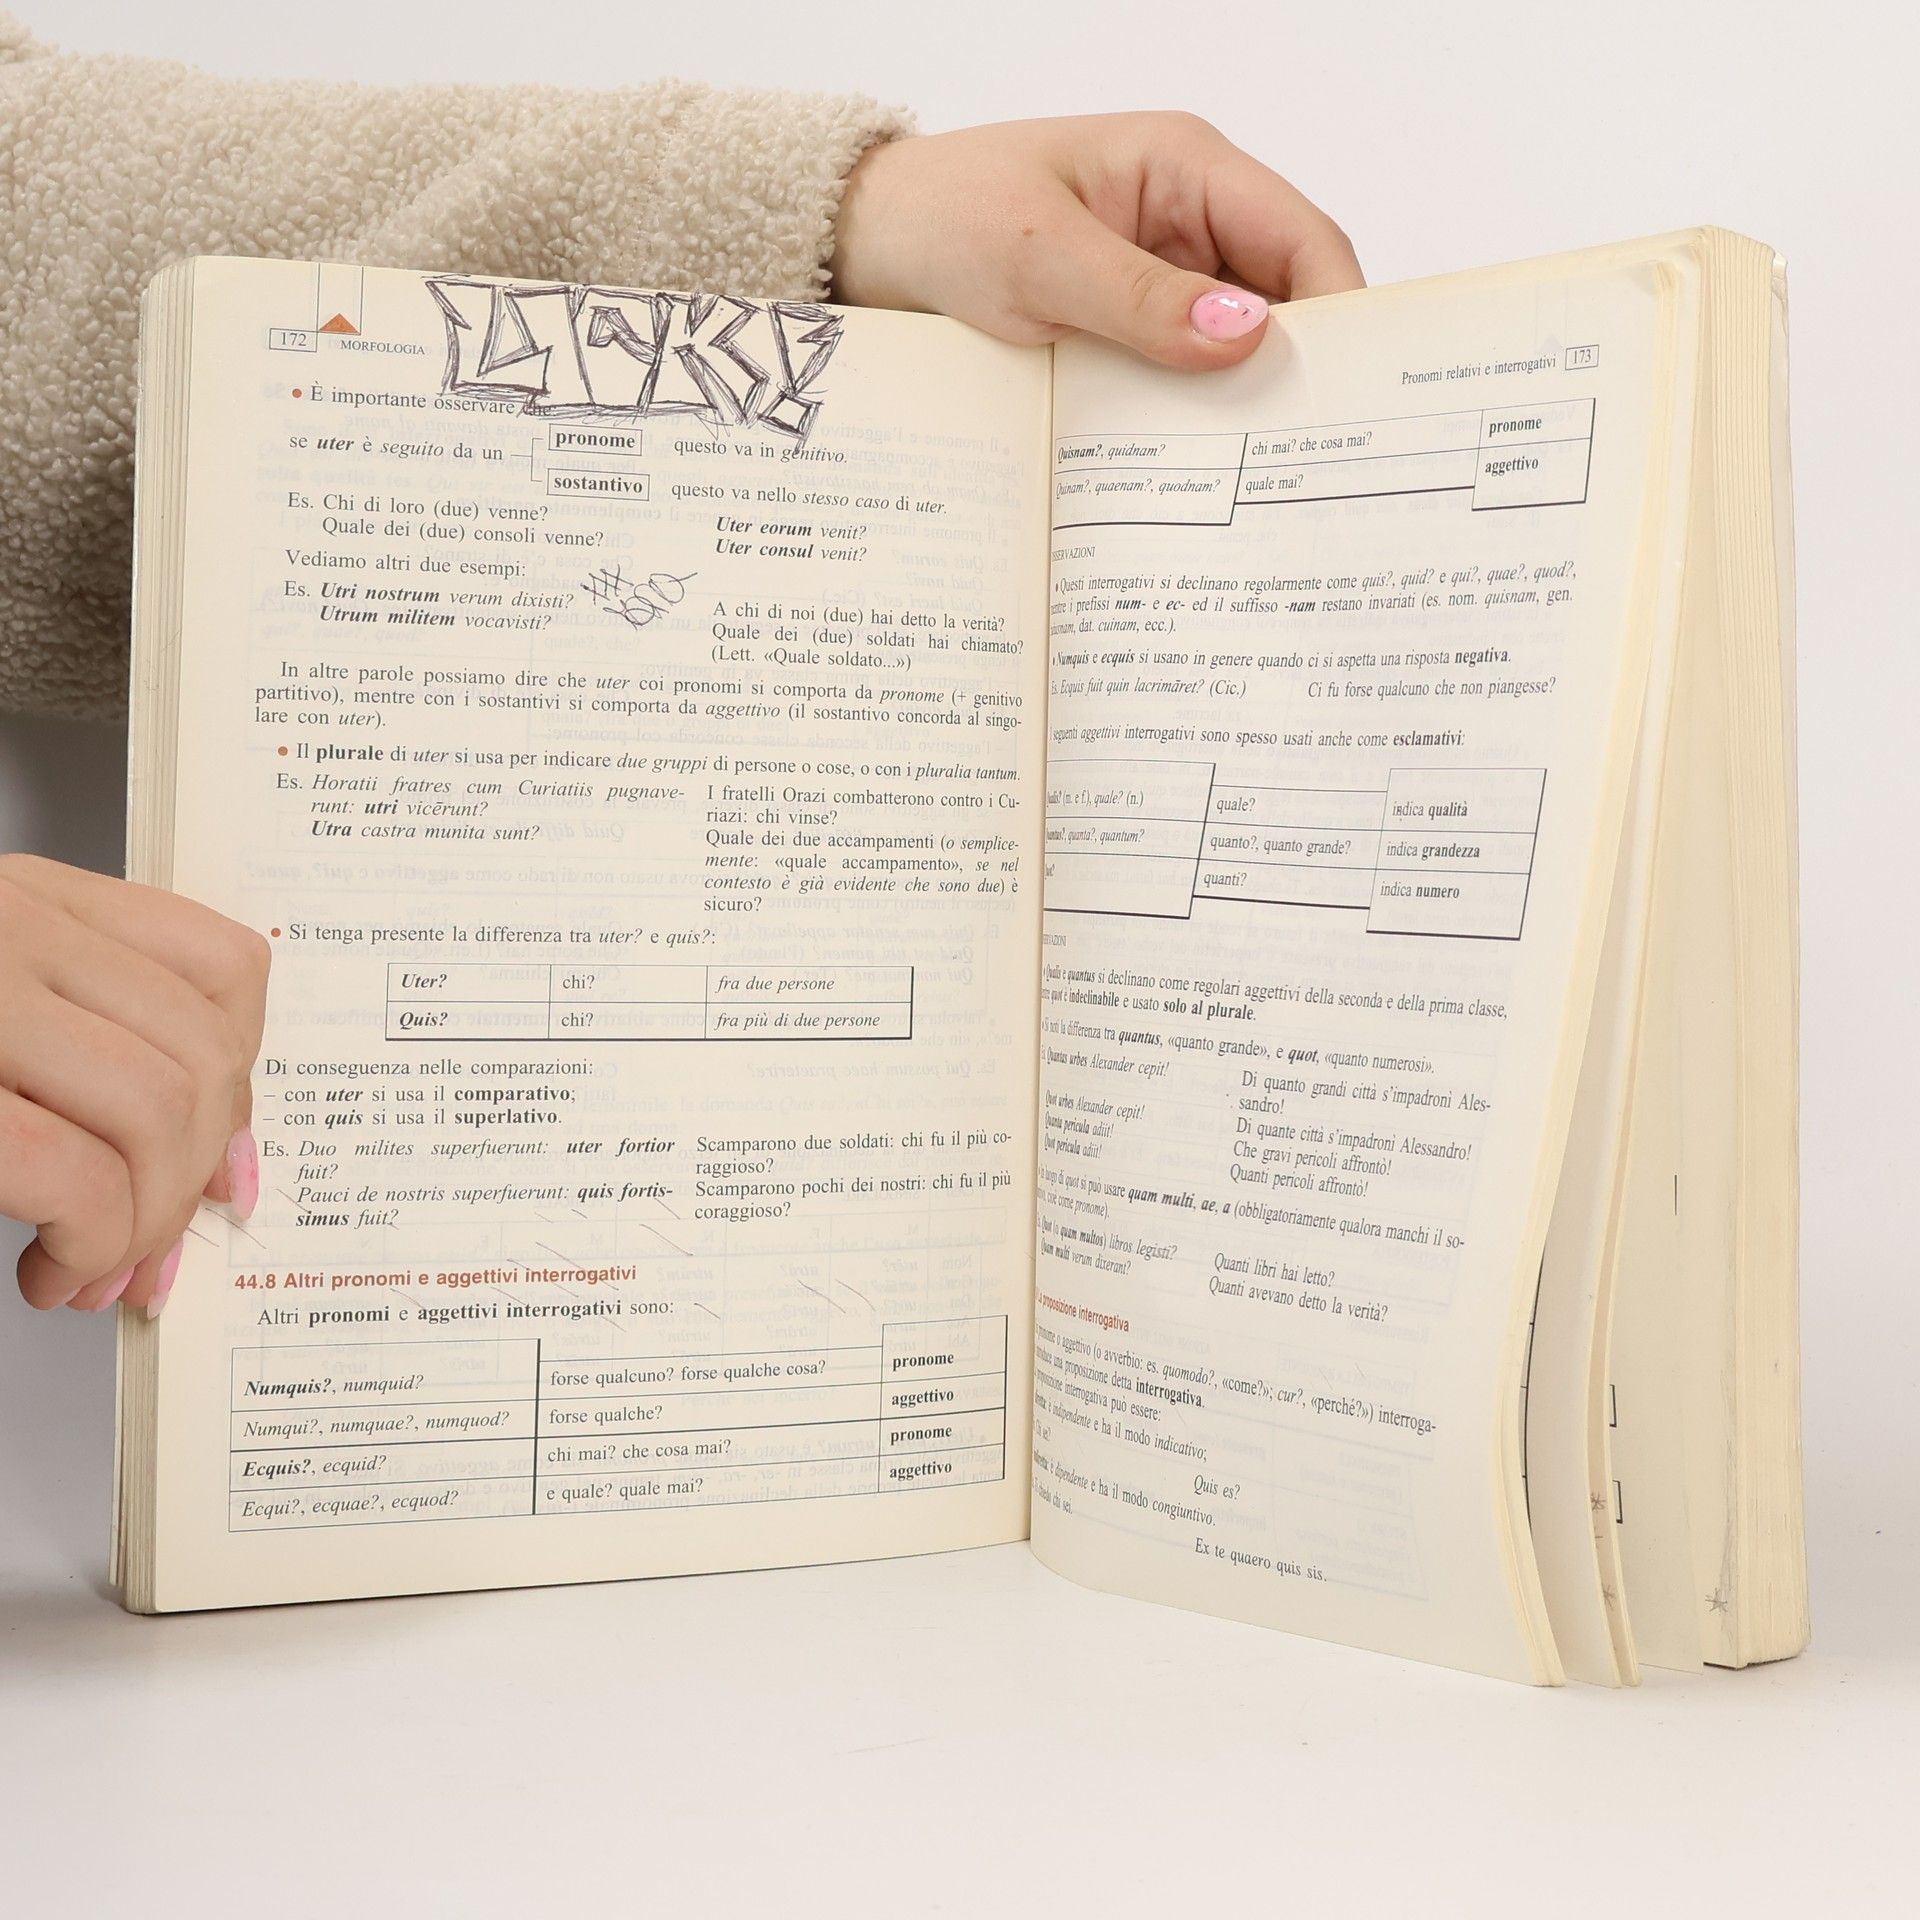 172 MORFOLOGIA
• È importante osservare che:
se uter è seguito da un
pronome
questo va in genitivo.
sostantivo
questo va nello stesso caso di uter.
Es. Chi di loro (due) venne?
Uter eorum venit?
Quale dei (due) consoli venne?
Uter consul venit?
Vediamo altri due esempi:
Es. Utri nostrum verum dixisti?
A chi di noi (due) hai detto la verità?
Utrum militem vocavisti?
Quale dei (due) soldati hai chiamato?
(Lett. «Quale soldato...»)
In altre parole possiamo dire che uter coi pronomi si comporta da pronome (+ genitivo
partitivo), mentre con i sostantivi si comporta da aggettivo (il sostantivo concorda al singo-
lare con uter).
• Il plurale di uter si usa per indicare due gruppi di persone o cose, o con i pluralia tantum.
Es. Horatii fratres cum Curiatiis pugnave-
runt: utri vicērunt?
Utra castra munita sunt?
I fratelli Orazi combatterono contro i Cu-
riazi: chi vinse?
Quale dei due accampamenti (o semplice-
mente: «quale accampamento», se nel
contesto è già evidente che sono due) è
sicuro?
• Si tenga presente la differenza tra uter? e quis?:
Uter? chi? fra due persone
Quis? chi? fra più di due persone
Di conseguenza nelle comparazioni:
– con uter si usa il comparativo;
– con quis si usa il superlativo.
Es. Duo milites superfuerunt: uter fortior
fuit?
Scamparono due soldati: chi fu il più co-
raggioso?
Pauci de nostris superfuerunt: quis fortis-
simus fuit?
Scamparono pochi dei nostri: chi fu il più
coraggioso?
44.8 Altri pronomi e aggettivi interrogativi
Altri pronomi e aggettivi interrogativi sono:
Numquis?, numquid? forse qualcuno? forse qualche cosa? pronome
Numqui?, numquae?, numquod? forse qualche? aggettivo
Ecquis?, ecquid? chi mai? che cosa mai? pronome
Ecqui?, ecquae?, ecquod? e quale? quale mai? aggettivo
Pronomi relativi e interrogativi 173
Quisnam?, quidnam? chi mai? che cosa mai? pronome
Quinam?, quaenam?, quodnam? quale mai? aggettivo
• Questi interrogativi si declinano regolarmente come quis?, quid? e qui?, quae?, quod?,
i prefissi num- e ec- ed il suffisso -nam restano invariati (es. nom. quisnam, gen.
dat. cuinam, ecc.).
• Numquis e ecquis si usano in genere quando ci si aspetta una risposta negativa.
Es. Ecquis fuit quin lacrimāret? (Cic.)
Ci fu forse qualcuno che non piangesse?
seguenti aggettivi interrogativi sono spesso usati anche come esclamativi:
(m. e f.), quale? (n.) quale? indica qualità
quanta?, quantum? quanto?, quanto grande? indica grandezza
quanti? indica numero
• Qualis e quantus si declinano come regolari aggettivi della seconda e della prima classe,
quot è indeclinabile e usato solo al plurale.
• Si noti la differenza tra quantus, «quanto grande», e quot, «quanto numerosi».
Quantas urbes Alexander cepit!
Di quanto grandi città s'impadronì Ales-
sandro!
Quot urbes Alexander cepit!
Di quante città s'impadronì Alessandro!
Quanta pericula adiit!
Che gravi pericoli affrontò!
Quot pericula adiit!
Quanti pericoli affrontò!
luogo di quot si può usare quam multi, ae, a (obbligatoriamente qualora manchi il so-
cioè come pronome).
Quot (o quam multos) libros legisti?
Quanti libri hai letto?
Quam multi verum dixerant?
Quanti avevano detto la verità?
La proposizione interrogativa
pronome o aggettivo (o avverbio: es. quomodo?, «come?»; cur?, «perché?») interroga-
introduce una proposizione detta interrogativa.
proposizione interrogativa può essere:
è indipendente e ha il modo indicativo;
Chi sei?
Quis es?
è dipendente e ha il modo congiuntivo.
chiedo chi sei.
Ex te quaero quis sis.